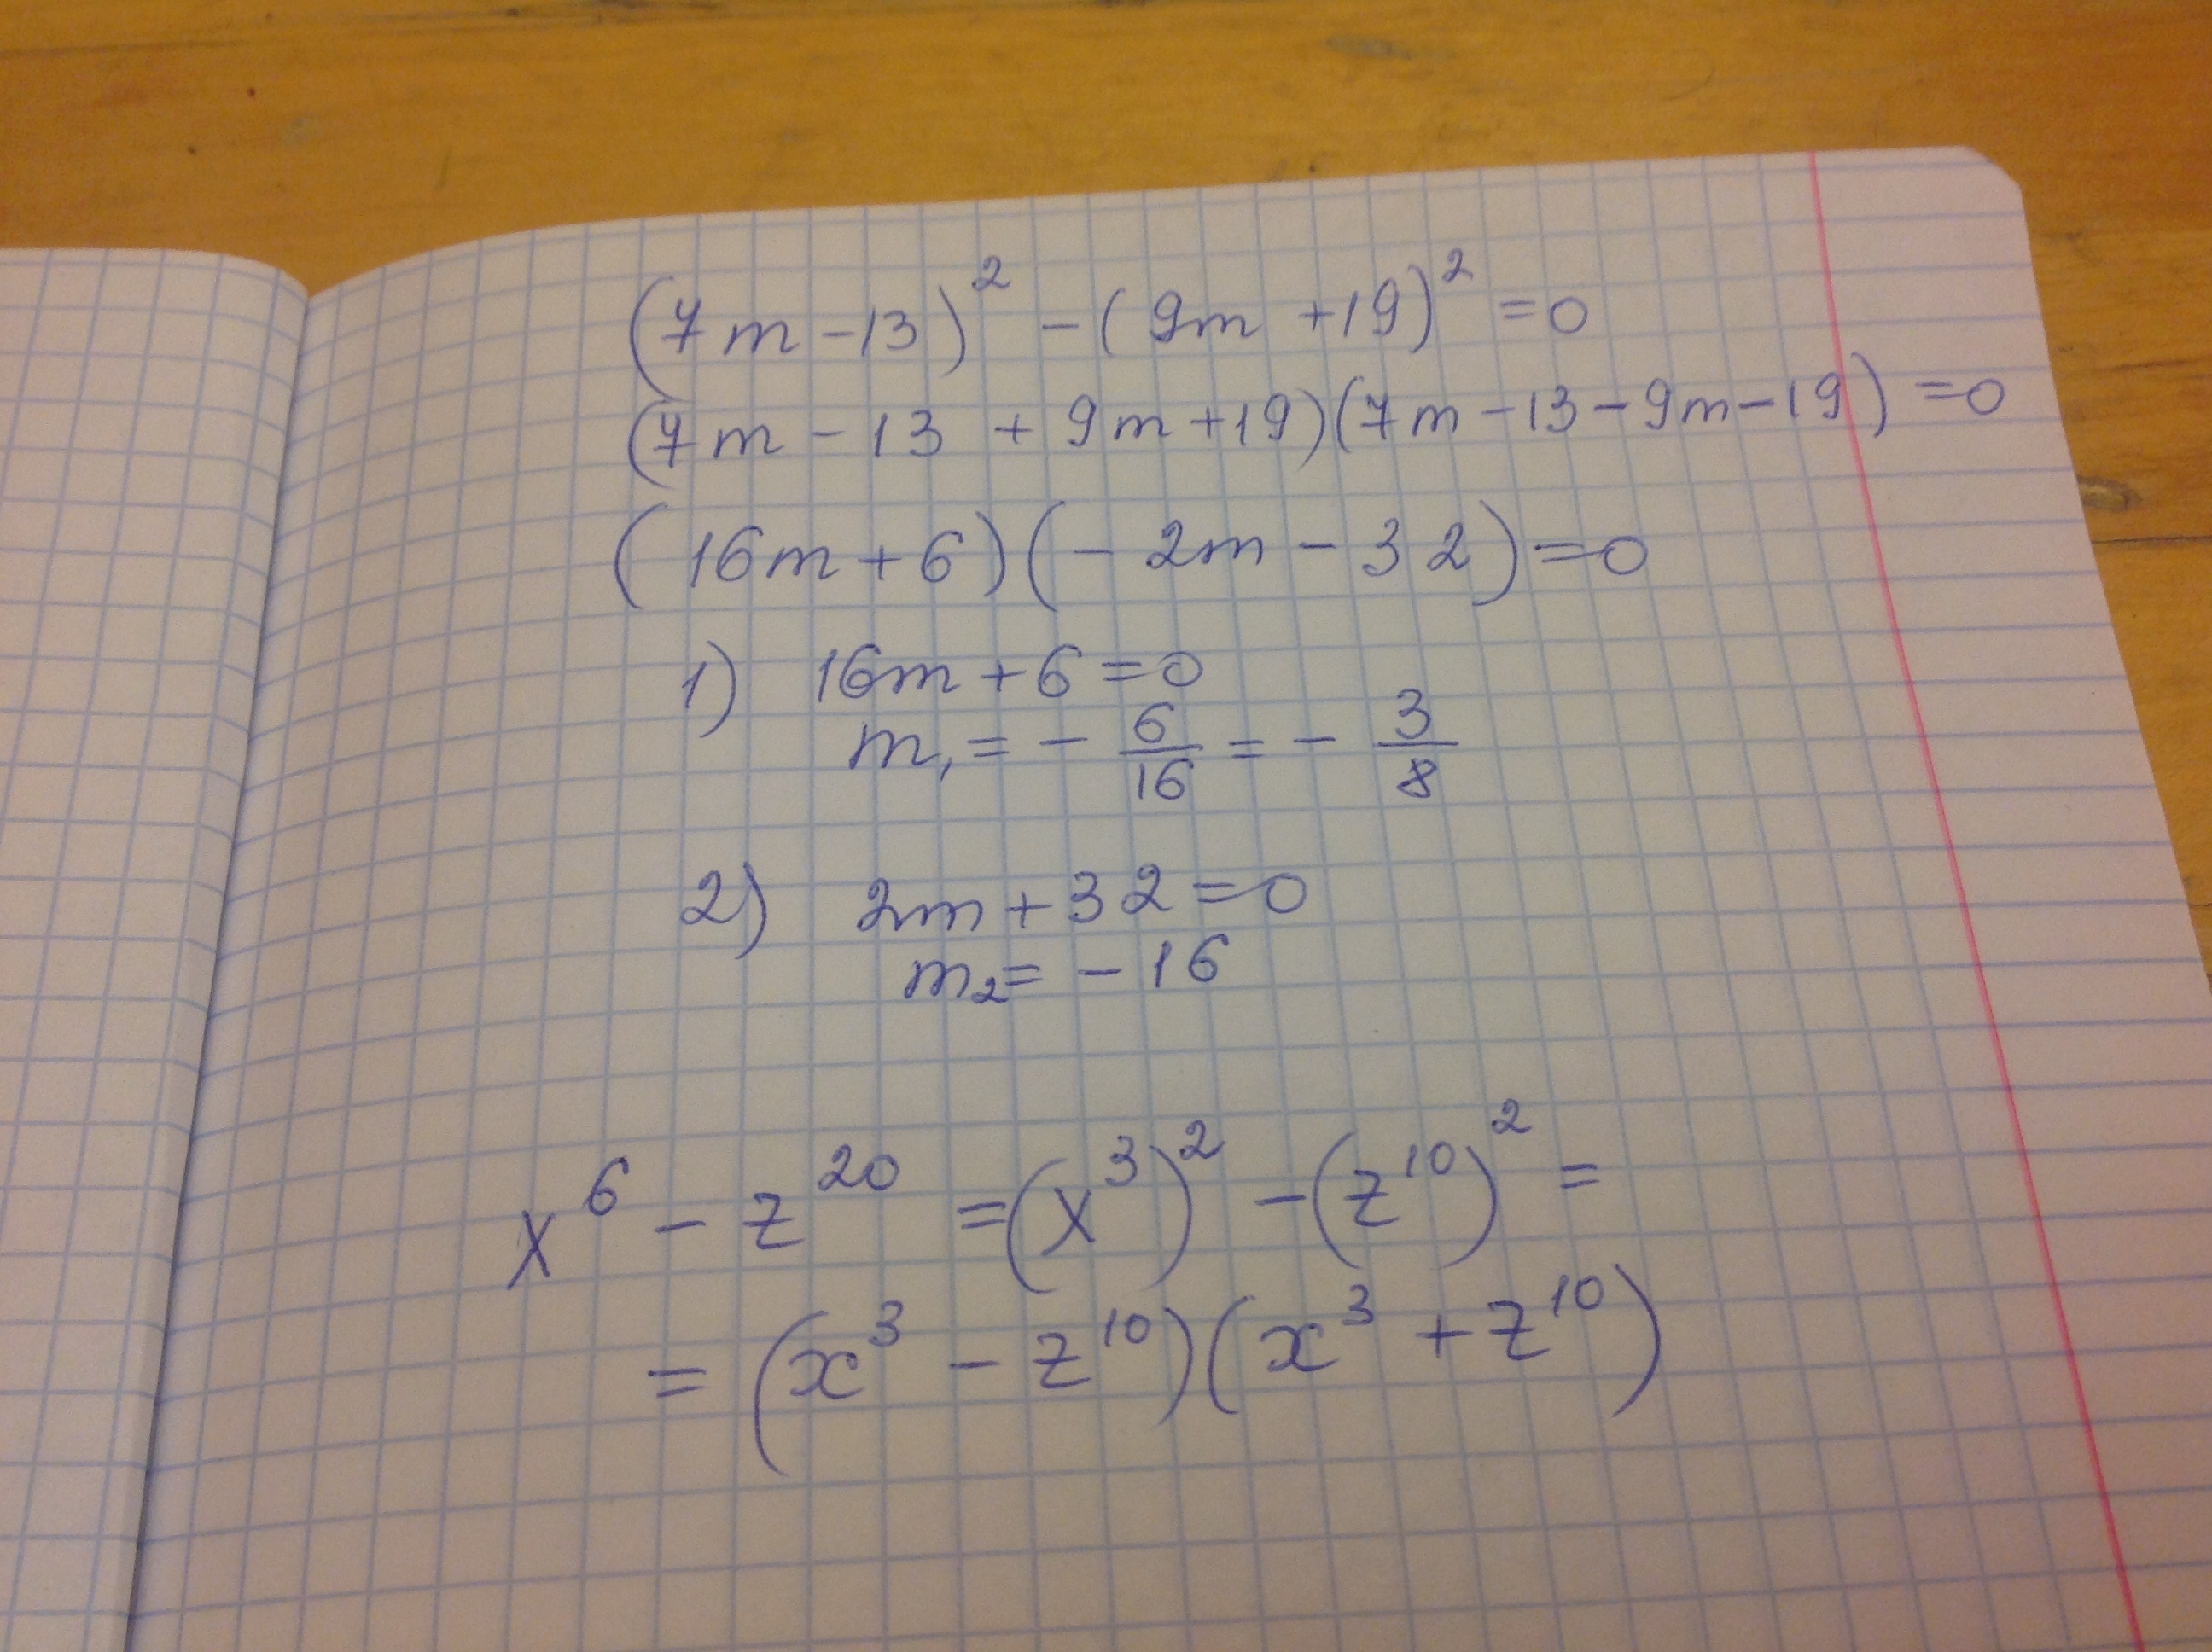 (7m-13)² -(9m+19)² =0
(7m-13+9m+19)(7m-13-9m-19)=0
(16m+6)(-2m-32)=0
1) 16m+6=0
m₁ = - 6/16 = - 3/8
2) 2m+32=0
m₂= -16
x⁶ - z²⁰ =(x³)² -(z¹⁰)² =
= (x³ - z¹⁰)(x³ + z¹⁰)